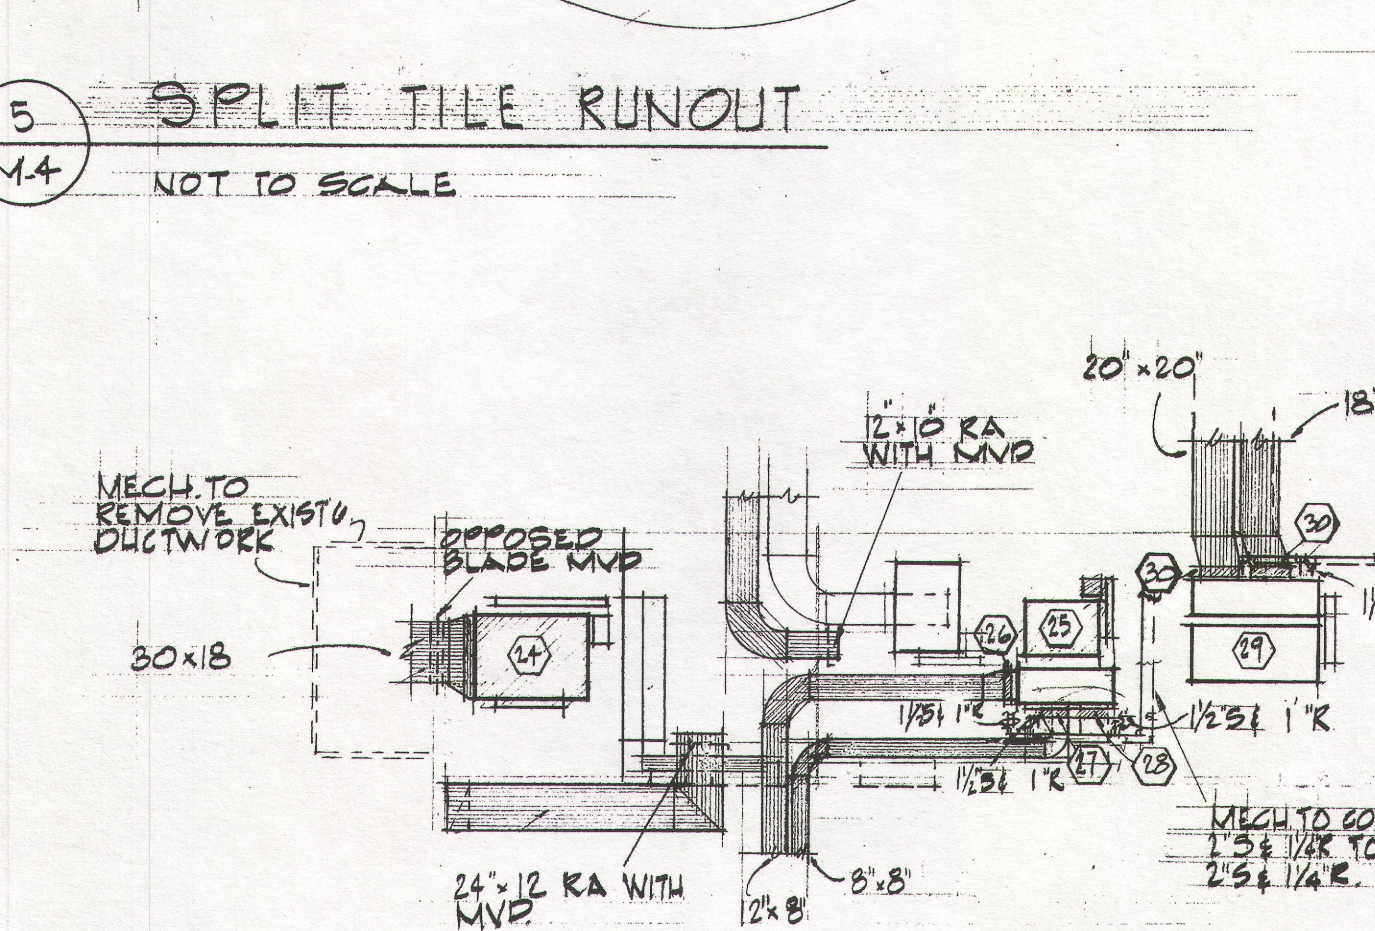 5
M-4
SPLIT TILE RUNOUT
NOT TO SCALE
20" x 20"
18"
12" x 10" RA
WITH MVD
MECH. TO
REMOVE EXIST'G
DUCTWORK
OPPOSED
BLADE MVD
30
30
30x18
24
26
25
29
1 1/2"S & 1"R
1 1/2"S & 1"R
1 1/2"S & 1"R
27
28
MECH. TO CO
2"S & 1 1/4"R TO
2"S & 1 1/4"R.
24" x 12 RA WITH
MVD.
12" x 8"
8" x 8"